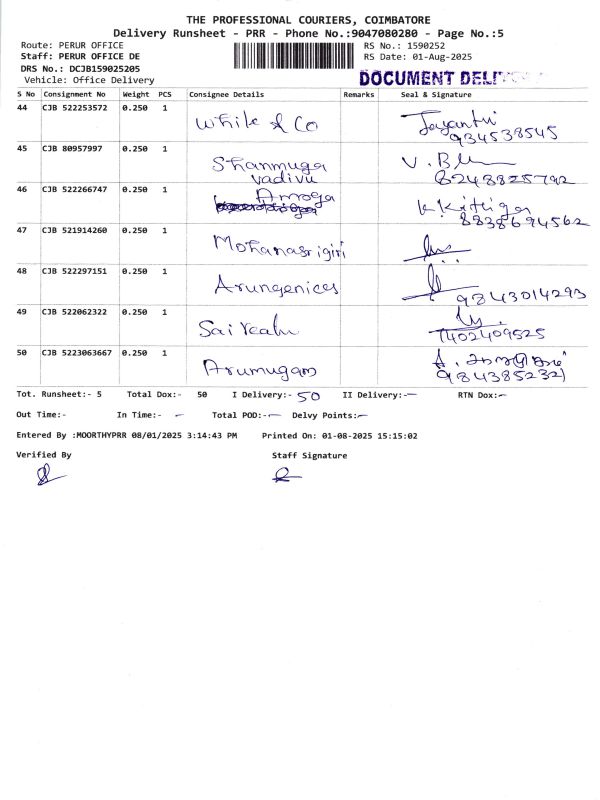 THE PROFESSIONAL COURIERS, COIMBATORE
Delivery Runsheet - PRR - Phone No.:9047080280 - Page No.:5
Route: PERUR OFFICE RS No.: 1590252
Staff: PERUR OFFICE DE RS Date: 01-Aug-2025
DRS No.: DCJB159025205
Vehicle: Office Delivery DOCUMENT
S No Consignment No Weight PCS Consignee Details Remarks Seal & Signature
44 CJB 522253572 0.250 1
While & Co Jayanthi
934538545
45 CJB 80957997 0.250 1
Shanmuga V.
vadivu 8248825792
46 CJB 522266747 0.250 1 Amoga
8838694562
47 CJB 521914260 0.250 1
Mohanasrigiri
48 CJB 522297151 0.250 1
Arungenices
9843014293
49 CJB 522062322 0.250 1
Sai
7402409525
50 CJB 5223063667 0.250 1
Arumugam
9843852321
Tot. Runsheet:- 5 Total Dox:- 50 I Delivery:- 50 II Delivery:- RTN Dox:-
Out Time:- In Time:- Total POD:- Delvy Points:-
Entered By :MOORTHYPRR 08/01/2025 3:14:43 PM Printed On: 01-08-2025 15:15:02
Verified By Staff Signature